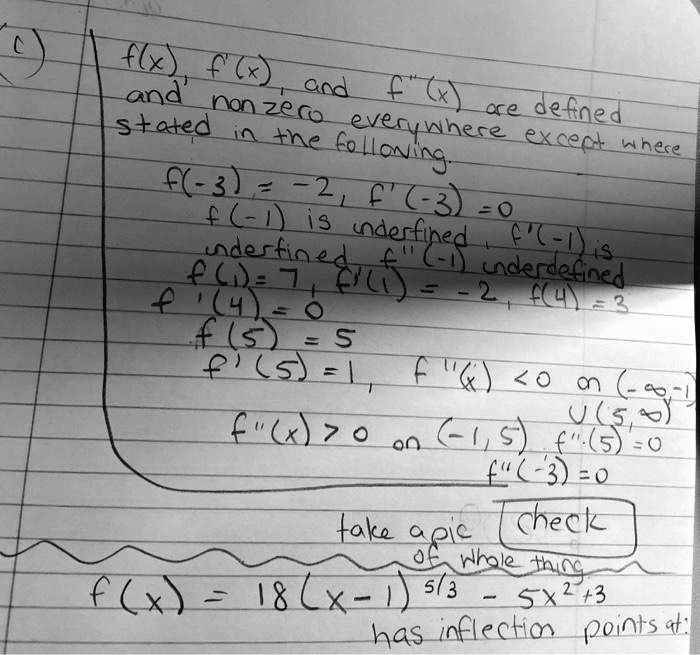 c) f(x), f'(x), and f"(x) are defined
and non zero everywhere except where
stated in the following.
f(-3) = -2, f'(-3) = 0
f(-1) is undesfined, f'(-1) is
undesfined f"(-1) underdefined
f(1) = 7, f'(1) = -2, f(4) = 3
f'(4) = 0
f(5) = 5
f'(5) = 1, f"(x) < 0 on (-∞,-1)
∪ (5,∞)
f"(x) > 0 on (-1,5) f"(5) = 0
f"(-3) = 0
take a pic check
of whole thing
f(x) = 18(x-1)^5/3 - 5x²+3
has inflection points at: